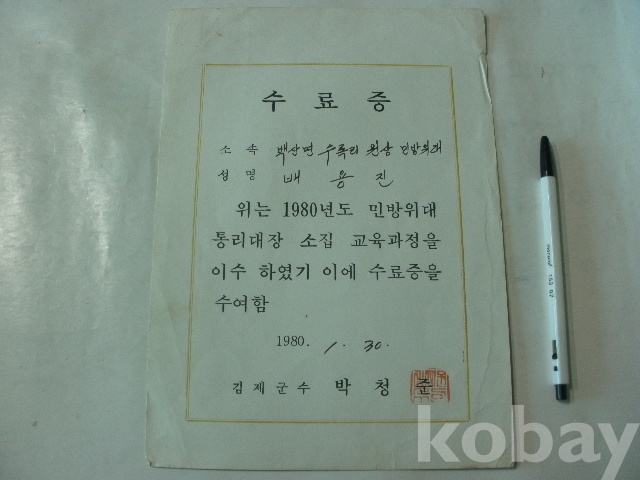 수료증
소속 백산면 수록리 원상 민방위대
성명 배용진
위는 1980년도 민방위대
통리대장 소집 교육과정을
이수 하였기 이에 수료증을
수여함
1980. 1. 30.
김제군수 박청준
monami 153 0.7
kobay